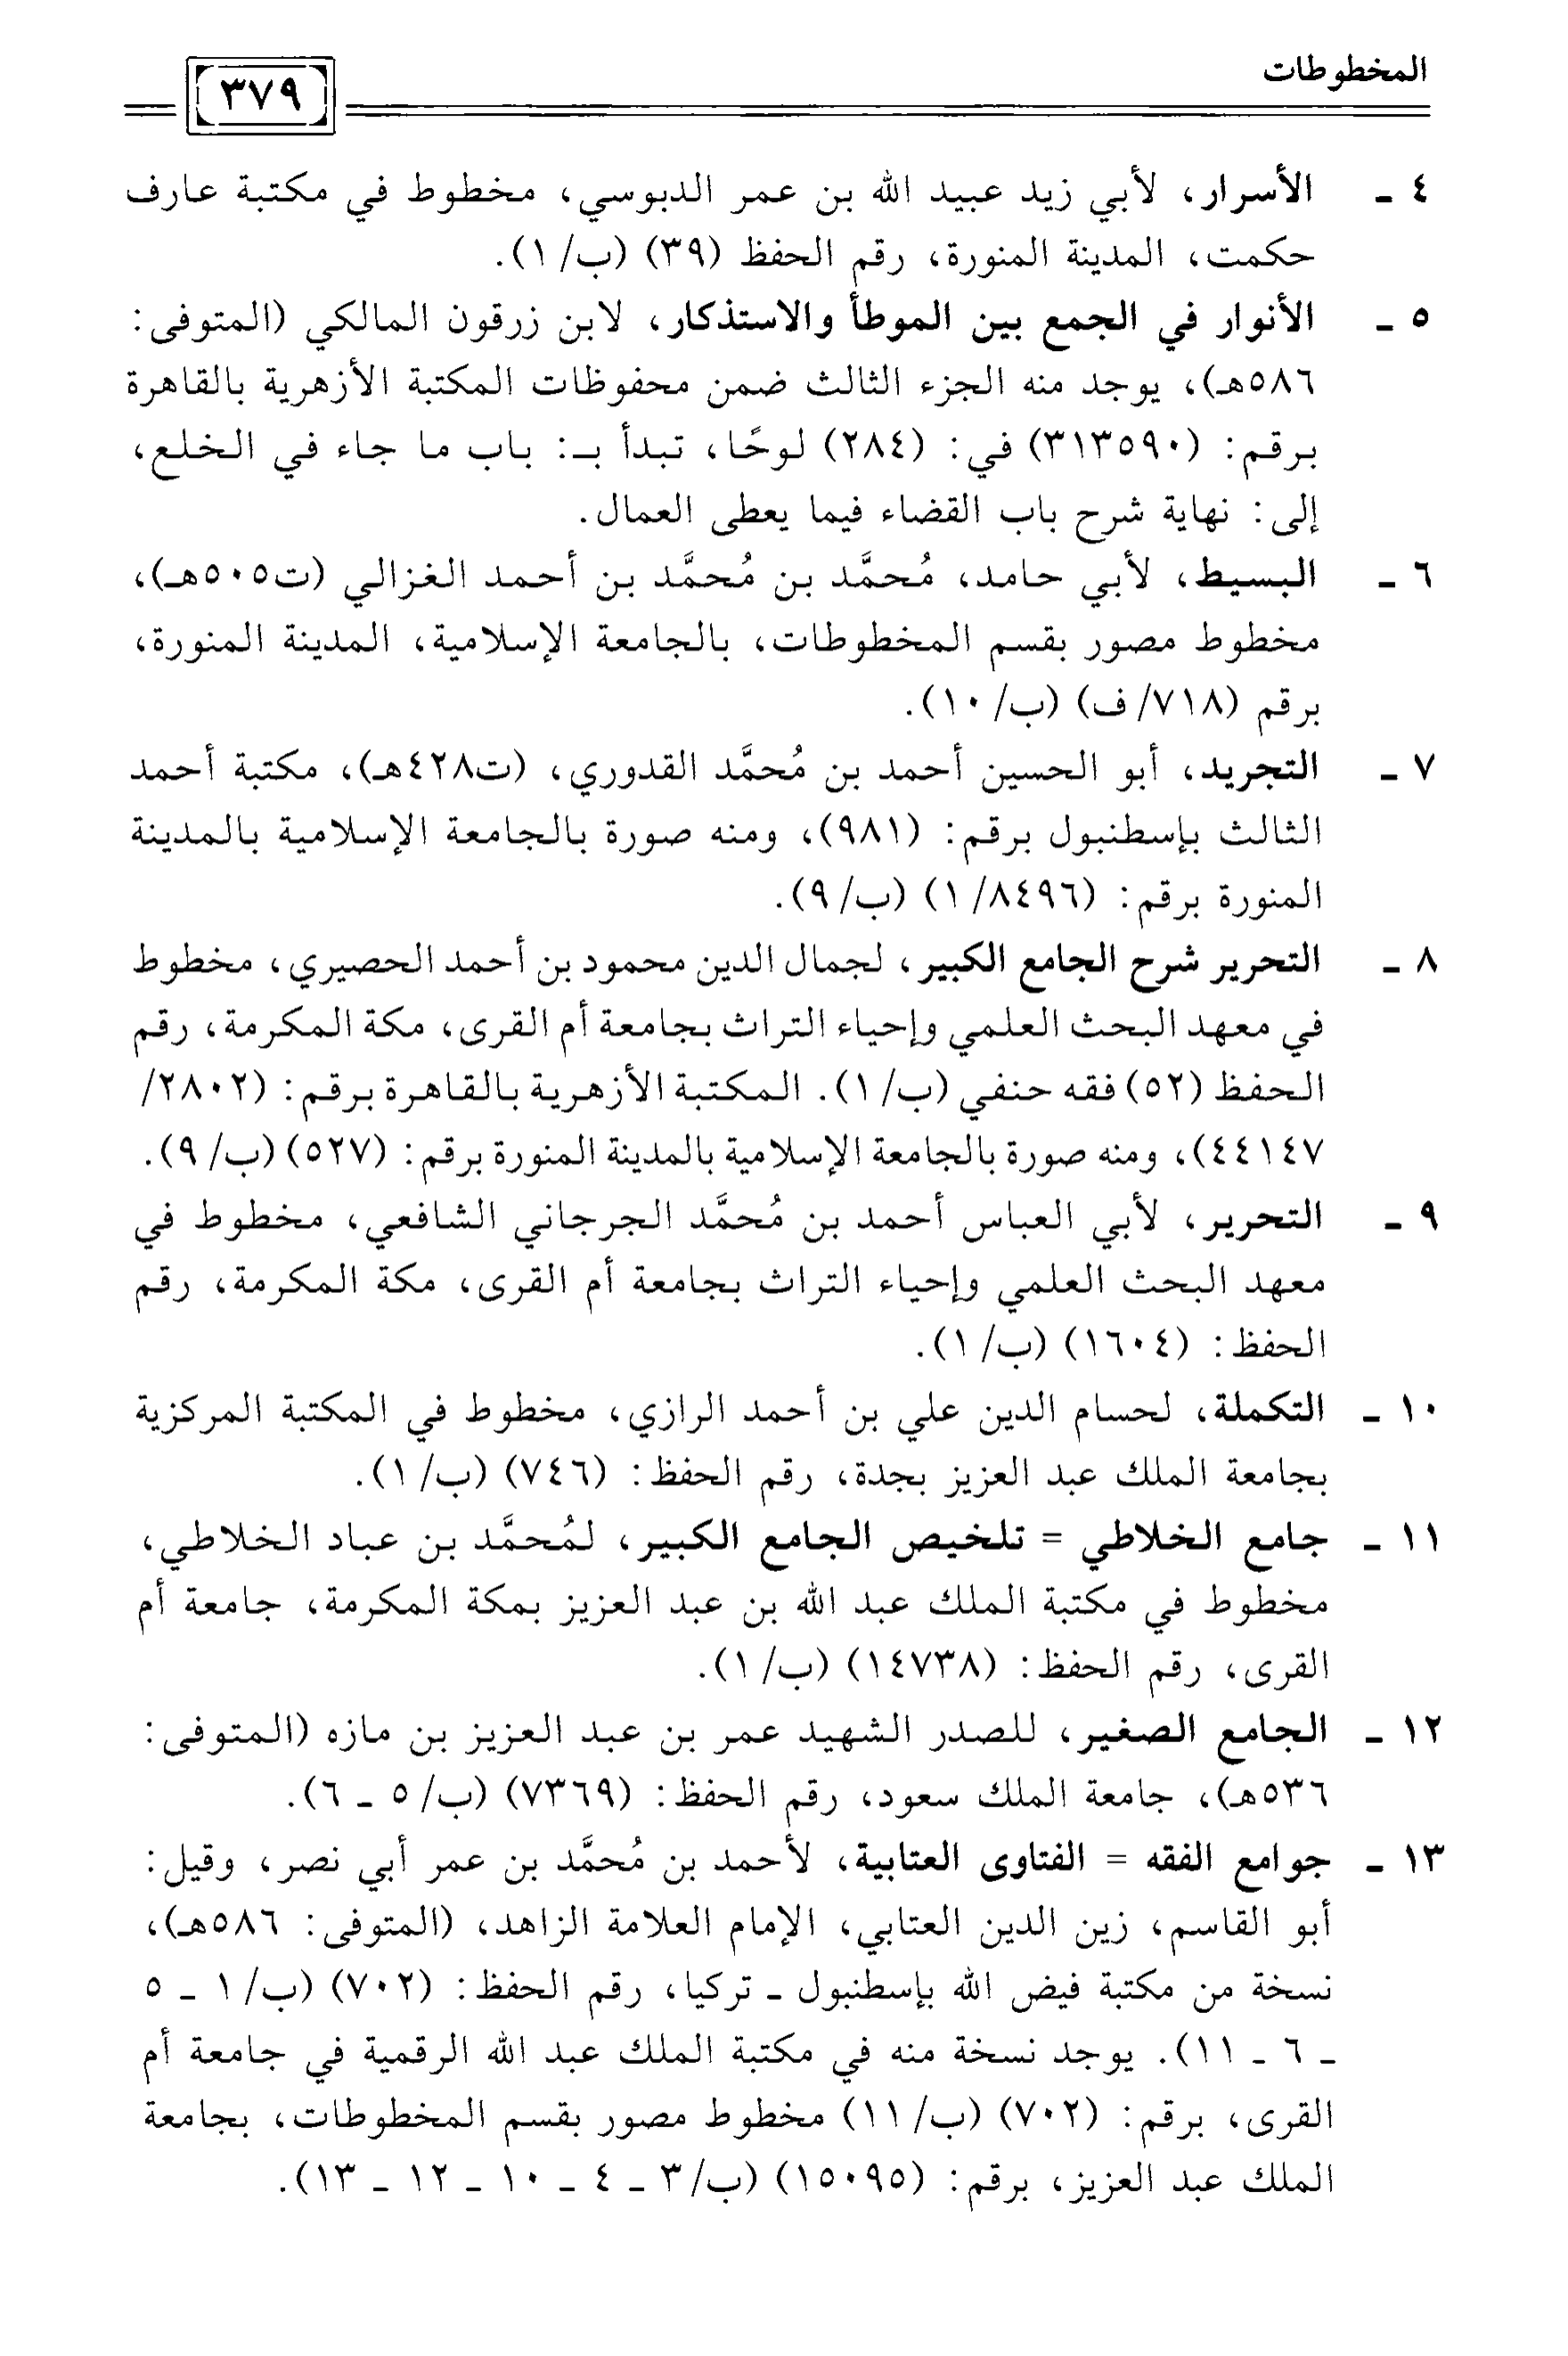 المخطوطات
٣٧٩
٤ ـ الأسرار، لأبي زيد عبيد الله بن عمر الدبوسي، مخطوط في مكتبة عارف
حكمت، المدينة المنورة، رقم الحفظ (٣٩) (ب/ ١).
٥ ـ الأنوار في الجمع بين الموطأ والاستذكار، لابن زرقون المالكي (المتوفى:
٥٨٦هـ)، يوجد منه الجزء الثالث ضمن محفوظات المكتبة الأزهرية بالقاهرة
برقم: (٣١٣٥٩٠) في: (٢٨٤) لوحًا، تبدأ بـ: باب ما جاء في الخلع،
إلى: نهاية شرح باب القضاء فيما يعطى العمال.
٦ ـ البسيط، لأبي حامد، مُحمَّد بن مُحمَّد بن أحمد الغزالي (ت٥٠٥هـ)،
مخطوط مصور بقسم المخطوطات، بالجامعة الإسلامية، المدينة المنورة،
برقم (٧١٨/ ف) (ب/ ١٠).
٧ ـ التجريد، أبو الحسين أحمد بن مُحمَّد القدوري، (ت٤٢٨هـ)، مكتبة أحمد
الثالث بإسطنبول برقم: (٩٨١)، ومنه صورة بالجامعة الإسلامية بالمدينة
المنورة برقم: (٨٤٩٦/ ١) (ب/ ٩).
٨ ـ التحرير شرح الجامع الكبير، لجمال الدين محمود بن أحمد الحصيري، مخطوط
في معهد البحث العلمي وإحياء التراث بجامعة أم القرى، مكة المكرمة، رقم
الحفظ (٥٢) فقه حنفي (ب/ ١). المكتبة الأزهرية بالقاهرة برقم: (٢٨٠٢/
٤٤١٤٧)، ومنه صورة بالجامعة الإسلامية بالمدينة المنورة برقم: (٥٢٧) (ب/ ٩).
٩ ـ التحرير، لأبي العباس أحمد بن مُحمَّد الجرجاني الشافعي، مخطوط في
معهد البحث العلمي وإحياء التراث بجامعة أم القرى، مكة المكرمة، رقم
الحفظ: (١٦٠٤) (ب/ ١).
١٠ ـ التكملة، لحسام الدين علي بن أحمد الرازي، مخطوط في المكتبة المركزية
بجامعة الملك عبد العزيز بجدة، رقم الحفظ: (٧٤٦) (ب/ ١).
١١ ـ جامع الخلاطي = تلخيص الجامع الكبير، لمُحمَّد بن عباد الخلاطي،
مخطوط في مكتبة الملك عبد الله بن عبد العزيز بمكة المكرمة، جامعة أم
القرى، رقم الحفظ: (١٤٧٣٨) (ب/ ١).
١٢ ـ الجامع الصغير، للصدر الشهيد عمر بن عبد العزيز بن مازه (المتوفى:
٥٣٦هـ)، جامعة الملك سعود، رقم الحفظ: (٧٣٦٩) (ب/ ٥ ـ ٦).
١٣ ـ جوامع الفقه = الفتاوى العتابية، لأحمد بن مُحمَّد بن عمر أبي نصر، وقيل:
أبو القاسم، زين الدين العتابي، الإمام العلامة الزاهد، (المتوفى: ٥٨٦هـ)،
نسخة من مكتبة فيض الله بإسطنبول ـ تركيا، رقم الحفظ: (٧٠٢) (ب/ ١ ـ ٥
ـ ٦ ـ ١١). يوجد نسخة منه في مكتبة الملك عبد الله الرقمية في جامعة أم
القرى، برقم: (٧٠٢) (ب/ ١١) مخطوط مصور بقسم المخطوطات، بجامعة
الملك عبد العزيز، برقم: (١٥٠٩٥) (ب/ ٣ ـ ٤ ـ ١٠ ـ ١٢ ـ ١٣).